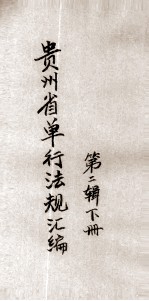 贵州省单行法规汇编
第二辑下册